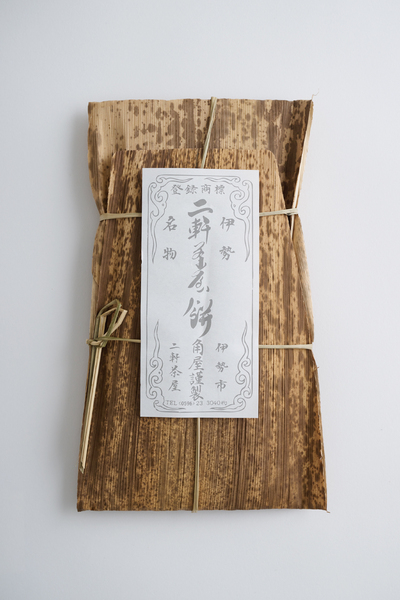 登録商標
伊勢
名物
二軒茶屋餅
角屋謹製
伊勢市
二軒茶屋